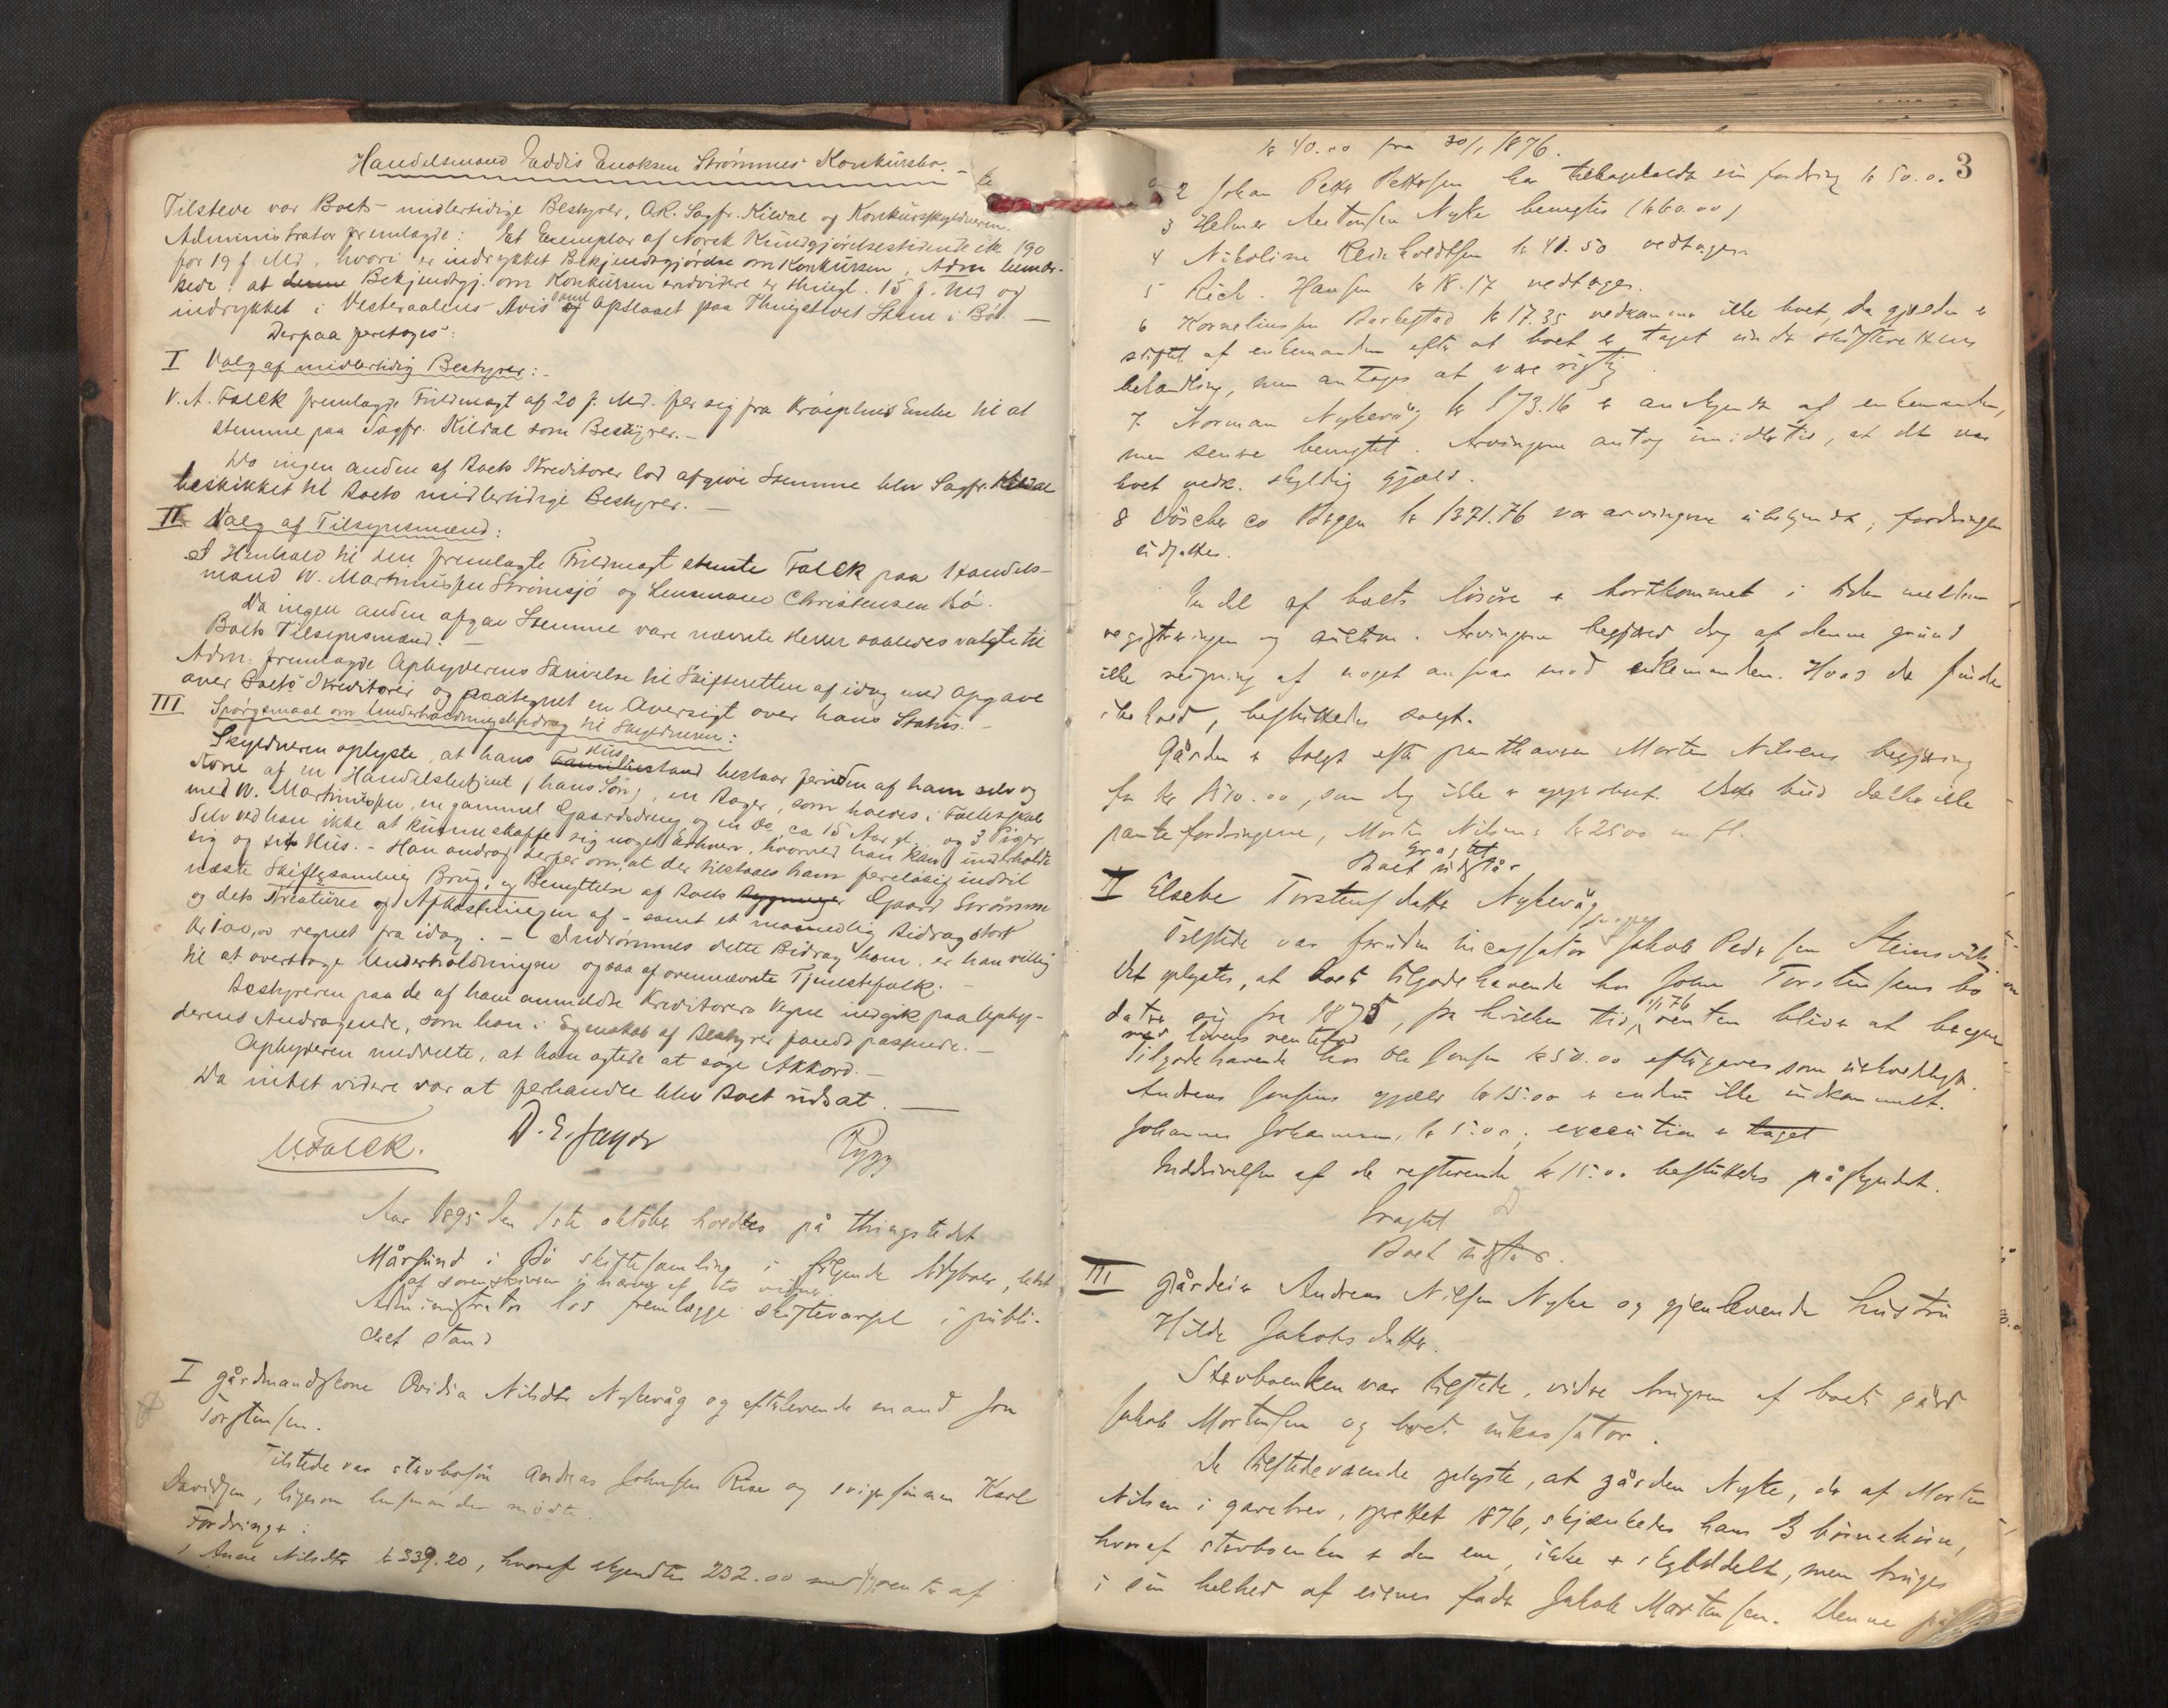 Handelsmand Eddis Enoksen Strømmes Konkursbo. -
Tilstede var Boets midlertidige Bestyrer, O.R. Sagfr. Kildal og Konkursskyldneren.
Administrator fremlagde: Et Exemplar af Norsk Kundgjørelsestidende No 190
for 19 f. Md., hvori er indrykket Bekjendtgjørelse om Konkursen, Adm bemær-
kede: at denne Bekjendtgj. om Konkursen endvidere er thingl. 15 f. Md og
indrykket i Vesteraalens Avis samt opslaaet paa Thingstedet Steine i Bø. -
Derpaa foretoges:
I Valg af midlertidig Bestyrer: -
V. A. Falck fremlagde Fuldmagt af 20 f. Md. for sig fra Kræplins Enke til at
stemme paa Sagfr. Kildal som Bestyrer. -
Da ingen anden af Boets Kreditorer lod afgive Stemme blev Sagfr. Kildal
beskikket til Boets midlertidige Bestyrer. -
II Valg af Tilsynsmænd:
I Henhold til den fremlagte Fuldmagt stemte Falck paa Handels-
mand W. Martinussen Strømsjø og Lensmand Christensen Bø.
Da ingen anden afgav Stemme vare nævnte Herrer saaledes valgte til
Boets Tilsynsmænd. -
Adm. fremlagde Opbyderens Skrivelse til Skifteretten af idag med Opgave
over Boets Kreditorer og paategnet en Oversigt over hans Status. -
III Spørgsmaal om Underholdningsbidrag til Skyldneren:
Skyldneren oplyste, at hans Husstand bestaar foruden af ham selv og
Kone af en Handelsbetjent (hans Søn), en Bager, som holdes i Fællesskab
med W. Martinussen, en gammel Gaardsdreng og en do, ca 15 Aar gl., og 3 Piger.
Selv ved han ikke at kunne skaffe sig noget Erhverv, hvorved han kan underholde
sig og sit Hus. - Han androg derfor om, at der tilstaaes ham foreløbig indtil
næste Skiftesamling Brug og Benyttelse af Boets Gaard Strømme
og dets Kreature og Afkastningen af - samt et maanedlig Bidrag stort
Kr 100,00 regnet fra idag. - Indrømmes dette Bidrag ham, er han villig
til at overtage Underholdningen ogsaa af ovennævnte Tjenestefolk. -
Bestyreren paa de af ham anmeldte Kreditorers Vegne indgik paa Opby-
derens Andragende, som han i Egenskab af Bestyrer fandt passende. -
Opbyderen meddelte, at han agtede at søge Akkord. -
Da intet videre var at forhandle blev Boet udsat. -
V. Falck. D. E. Rygg
Aar 1895 den 1ste oktober holdtes på thingstedet
Mårsund i Bø skiftesamling i følgende dødsboer, ledet
af sorenskriveren i nærvær af to vidner.
Administrator lod fremlægge skiftevarsel i publi-
ceret stand
I gårdmandskone Ovidia Nilsdtr Nykevåg og efterlevende mand Jon
Torstensen.
Tilstede var stervbosøn Andreas Johnsen Rise og svigersønnen Karl
Davidsen, ligesom enkemanden mødte.
Fordringer:
1 Anne Nilsdtr kr 339.20, hvoraf skyndtes 232.00 med renter af
3
kr 40.00 fra 30/1 1876.
2 Johan Peter Pettersen har tilbageholdt sin fordring kr 50.00
3 Helmer Antonsen Nyke benegtes (kr 60.00)
4 Nikoline Reinholdtsen kr 41.50 vedtages.
5 Rich. Hansen kr 18.17 vedtages.
6 Korneliussen Barkestad kr 17.35 vedkommer ikke boet, da gjælden er
stiftet af enkemanden efter at boet er taget under skifterettens
behandling, men antages at være rigtig.
7 Norman Nykevåg kr 173.16 er anerkjendt af enkemanden,
men senere benegtet. Arvingerne antog imidlertid, at det var
boet vedk. skyldig gjæld.
8 Döscher co Bergen kr 1371.76 var arvingerne ubekjendt; fordringen
udsattes.
En del af boets løsøre er bortkommet i tiden mellem
registreringen og auktion. Arvingerne begjæred dog af denne grund
ikke reisning af noget ansvar mod enkemanden. Hvad der findes
i behold, besluttedes solgt.
Gården er solgt efter panthaver Morten Nilsens begjæring
for kr 1510.00, som dog ikke er approberet. Dette bud dækker ikke
pantefordringerne, Morten Nilsens kr 2500 m. fl.
Oplæst
Boet udstår
II Elsebe Torstensdatter Nykevåg
Tilstede var foruden incassator Jakob Pedersen Steinsvik.
Det oplystes, at boets tilgodehavende hos John Torstensens bo
dater sig fra 1875, fra hvilken tid 1/1 76 renten bliver at beregne
med lovens rentefod
Tilgodehavende hos Ole Jonsen kr 50.00 eftergives som uerholdeligt.
Andreas Jonsens gjæld kr 15.00 er endnu ikke indkommet.
Johannes Johannesen, kr 5.00; execution er taget
Inddrivelsen af de resterende kr 15.00 besluttedes påskyndet.
Oplæst
Boet udstår.
III gårdeier Andreas Nilsen Nyke og gjenlevende hustru
Hilde Jakobsdatter.
Stervboenken var tilstede, videre brugeren af boets gård
Jakob Mortensen og boets inkassator.
De tilstedeværende oplyste, at gården Nyke, der af Morten
Nilsen i gavebrev, oprettet 1876, skjænkedes hans 3 børnebørn,
hvoraf stervboenken er den ene, ikke er skylddelt, men bruges
i sin helhed af eiernes fader Jakob Mortensen. Denne på